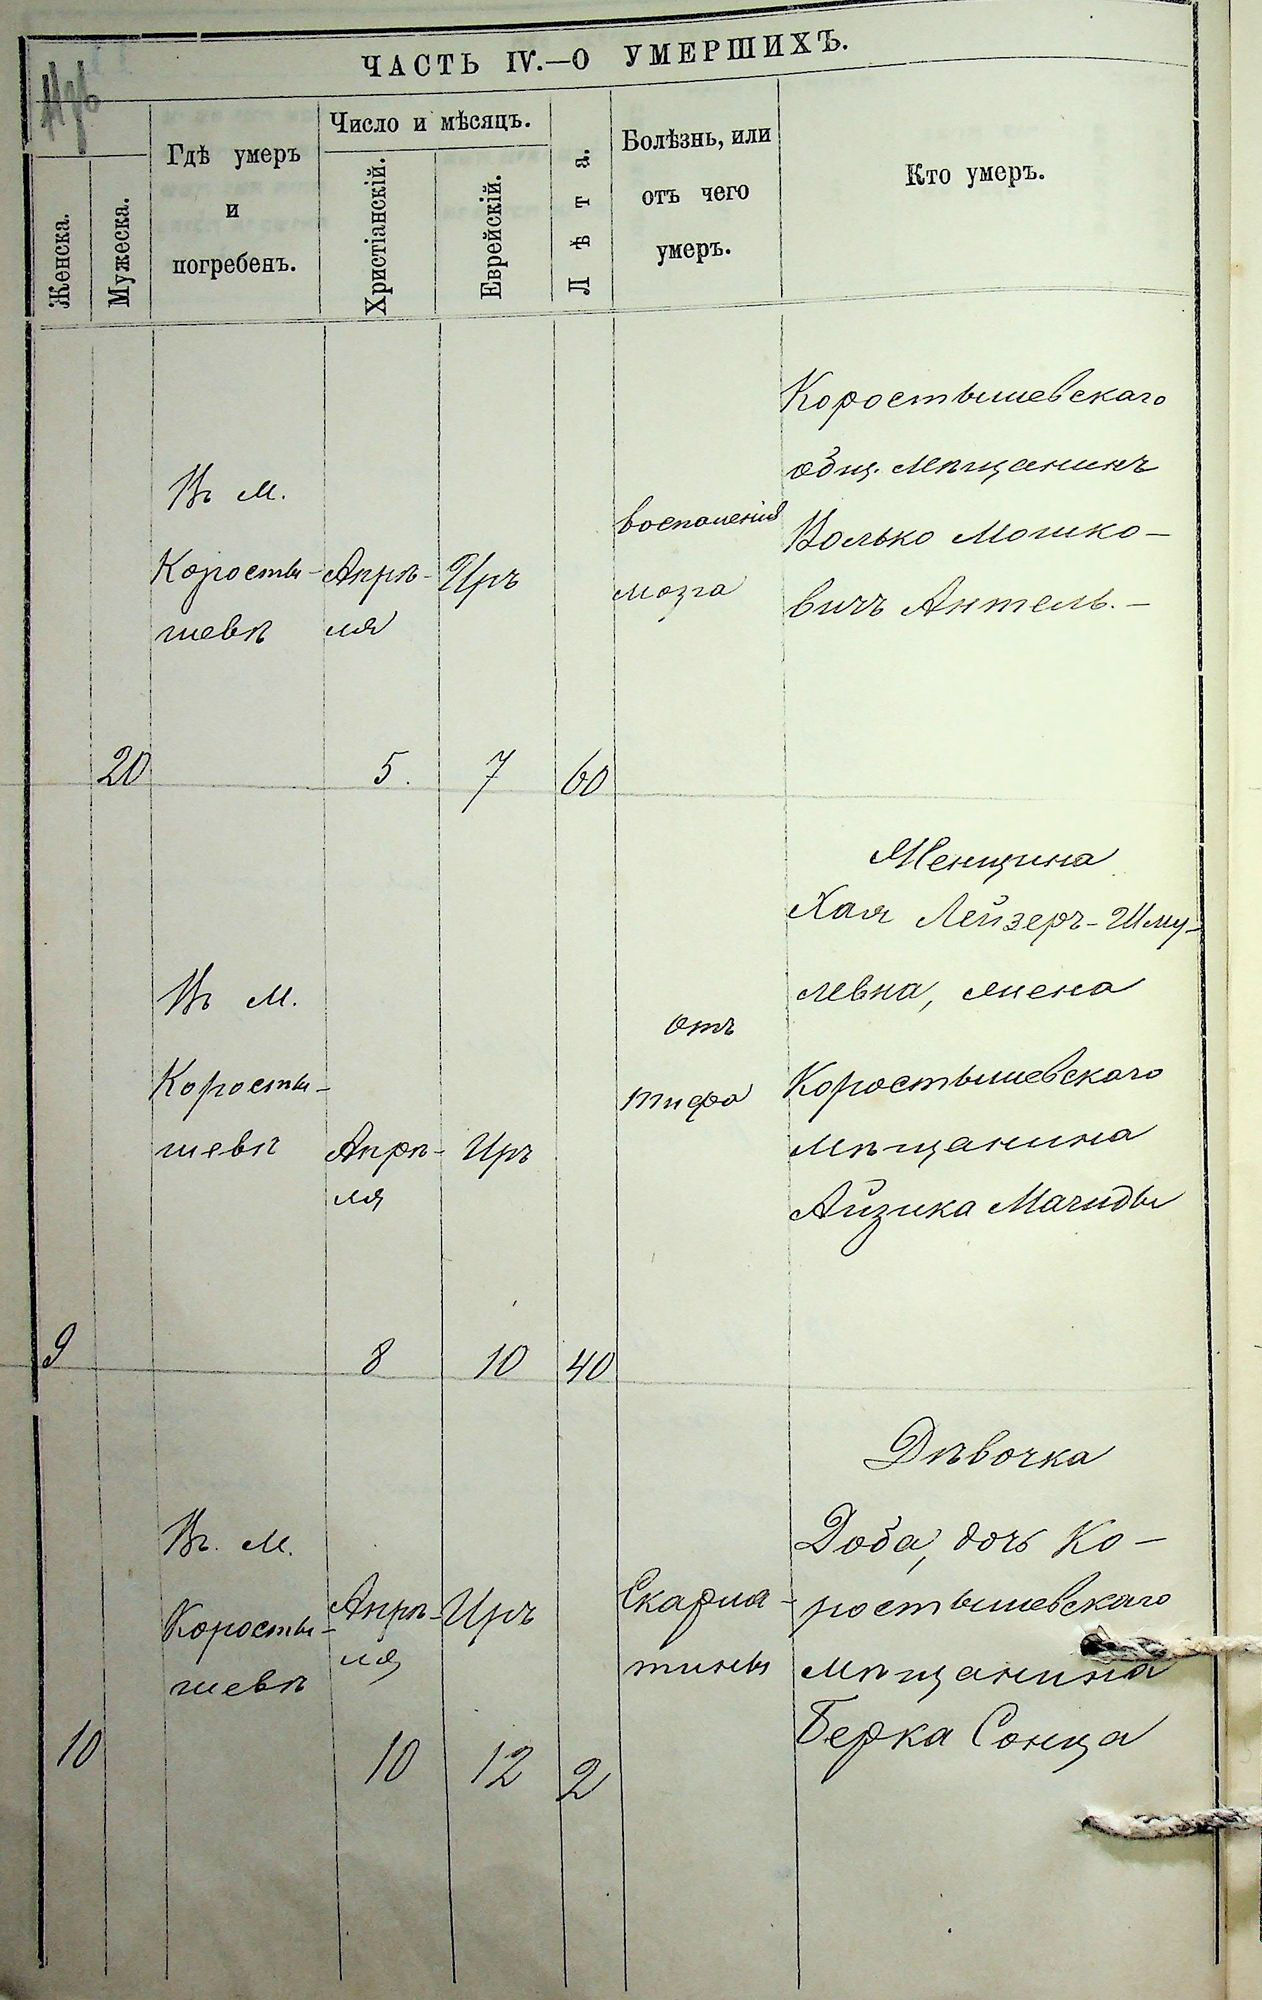 ЧАСТЬ IV.—О УМЕРШИХЪ.
Женска.
Мужеска.
Гдѣ умеръ
и
погребенъ.
Число и мѣсяцъ.
Христіанскій.
Еврейскій.
Лѣта.
Болѣзнь, или
отъ чего
умеръ.
Кто умеръ.
20
Въ м.
Коросты-
шевѣ
Апрѣ-
ля
5.
Иръ
7
60
воспаленія
мозга
Коростышевскаго
общ. мѣщанинъ
Волько Мошко-
вичъ Антель.-
9
Въ м.
Коросты-
шевѣ
Апрѣ-
ля
8
Иръ
10
40
отъ
тифа
Женщина
Хая Лейзеръ-Шму-
левна, жена
Коростышевскаго
мѣщанина
Айзика Магиды
10
Въ. м.
Коросты-
шевѣ
Апрѣ-
ля
10
Иръ
12
2
Скарла-
тины
Дѣвочка
Доба, дочь Ко-
ростышевскаго
мѣщанина
Берка Сонца